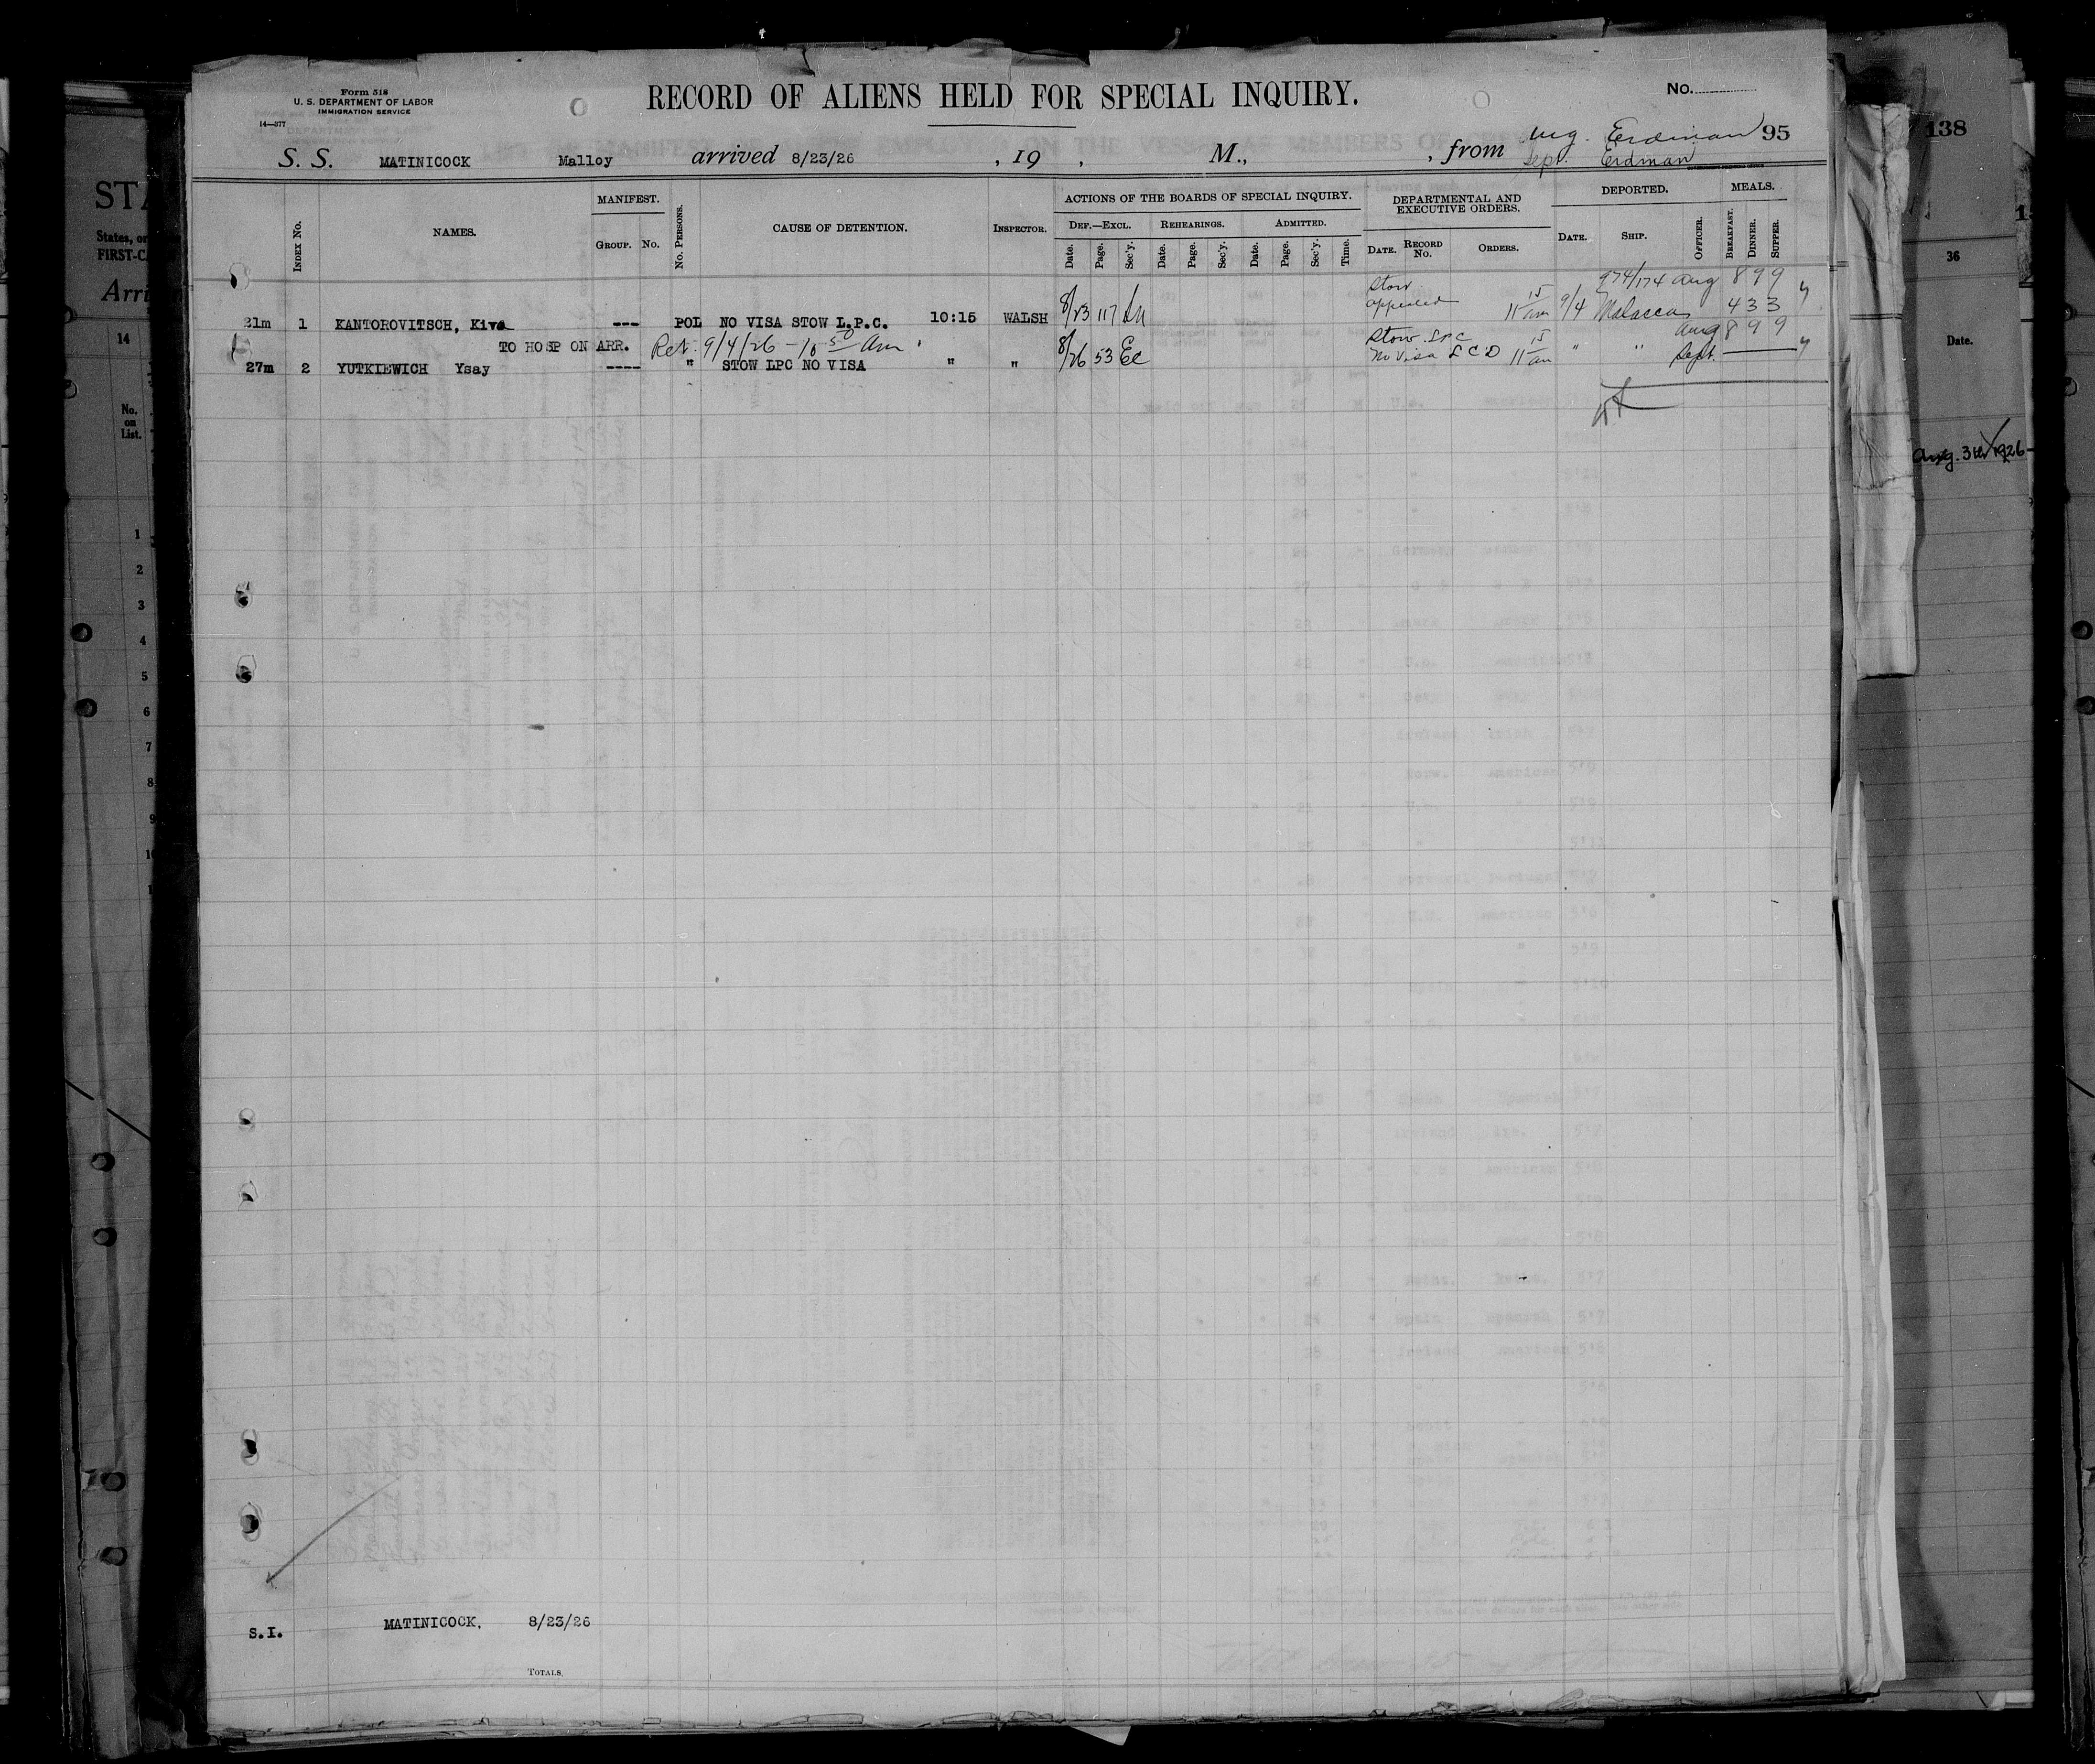 Form 518
U. S. DEPARTMENT OF LABOR
IMMIGRATION SERVICE
14—377
RECORD OF ALIENS HELD FOR SPECIAL INQUIRY.
No.
95
S. S. MATINICOCK Malloy arrived 8/23/26 , 19 , M., , from Aug. Erdman
Sept. Erdman
INDEX No.
NAMES.
MANIFEST.
GROUP. No.
No. PERSONS.
CAUSE OF DETENTION.
INSPECTOR.
ACTIONS OF THE BOARDS OF SPECIAL INQUIRY.
DEF.—EXCL. REHEARINGS. ADMITTED.
Date. Page. Sec'y. Date. Page. Sec'y. Date. Page. Sec'y. Time.
DEPARTMENTAL AND
EXECUTIVE ORDERS.
DATE. RECORD No. ORDERS.
DEPORTED.
DATE. SHIP. OFFICER.
MEALS.
BREAKFAST. DINNER. SUPPER.
Stow 974/174 Aug 8 9 9
21m 1 KANTOROVITSCH, Kiva --- POL NO VISA STOW L.P.C. 10:15 WALSH 8/23 117 appealed 11 15 am 9/4 Malacca 4 3 3
TO HOSP ON ARR. Ret. 9/4/26 - 10 50 am Stow. LPC Aug 8 9 9
27m 2 YUTKIEWICH Ysay ---- " STOW LPC NO VISA " " 8/26 53 Ec No Visa L C D 11 15 am " " Sept.
S.I. MATINICOCK, 8/23/26
TOTALS.
138
ST
States, or
FIRST-C
Arri
14
No.
on
List.
1
2
3
4
5
6
7
8
9
36
Date.
Aug. 31st 1926